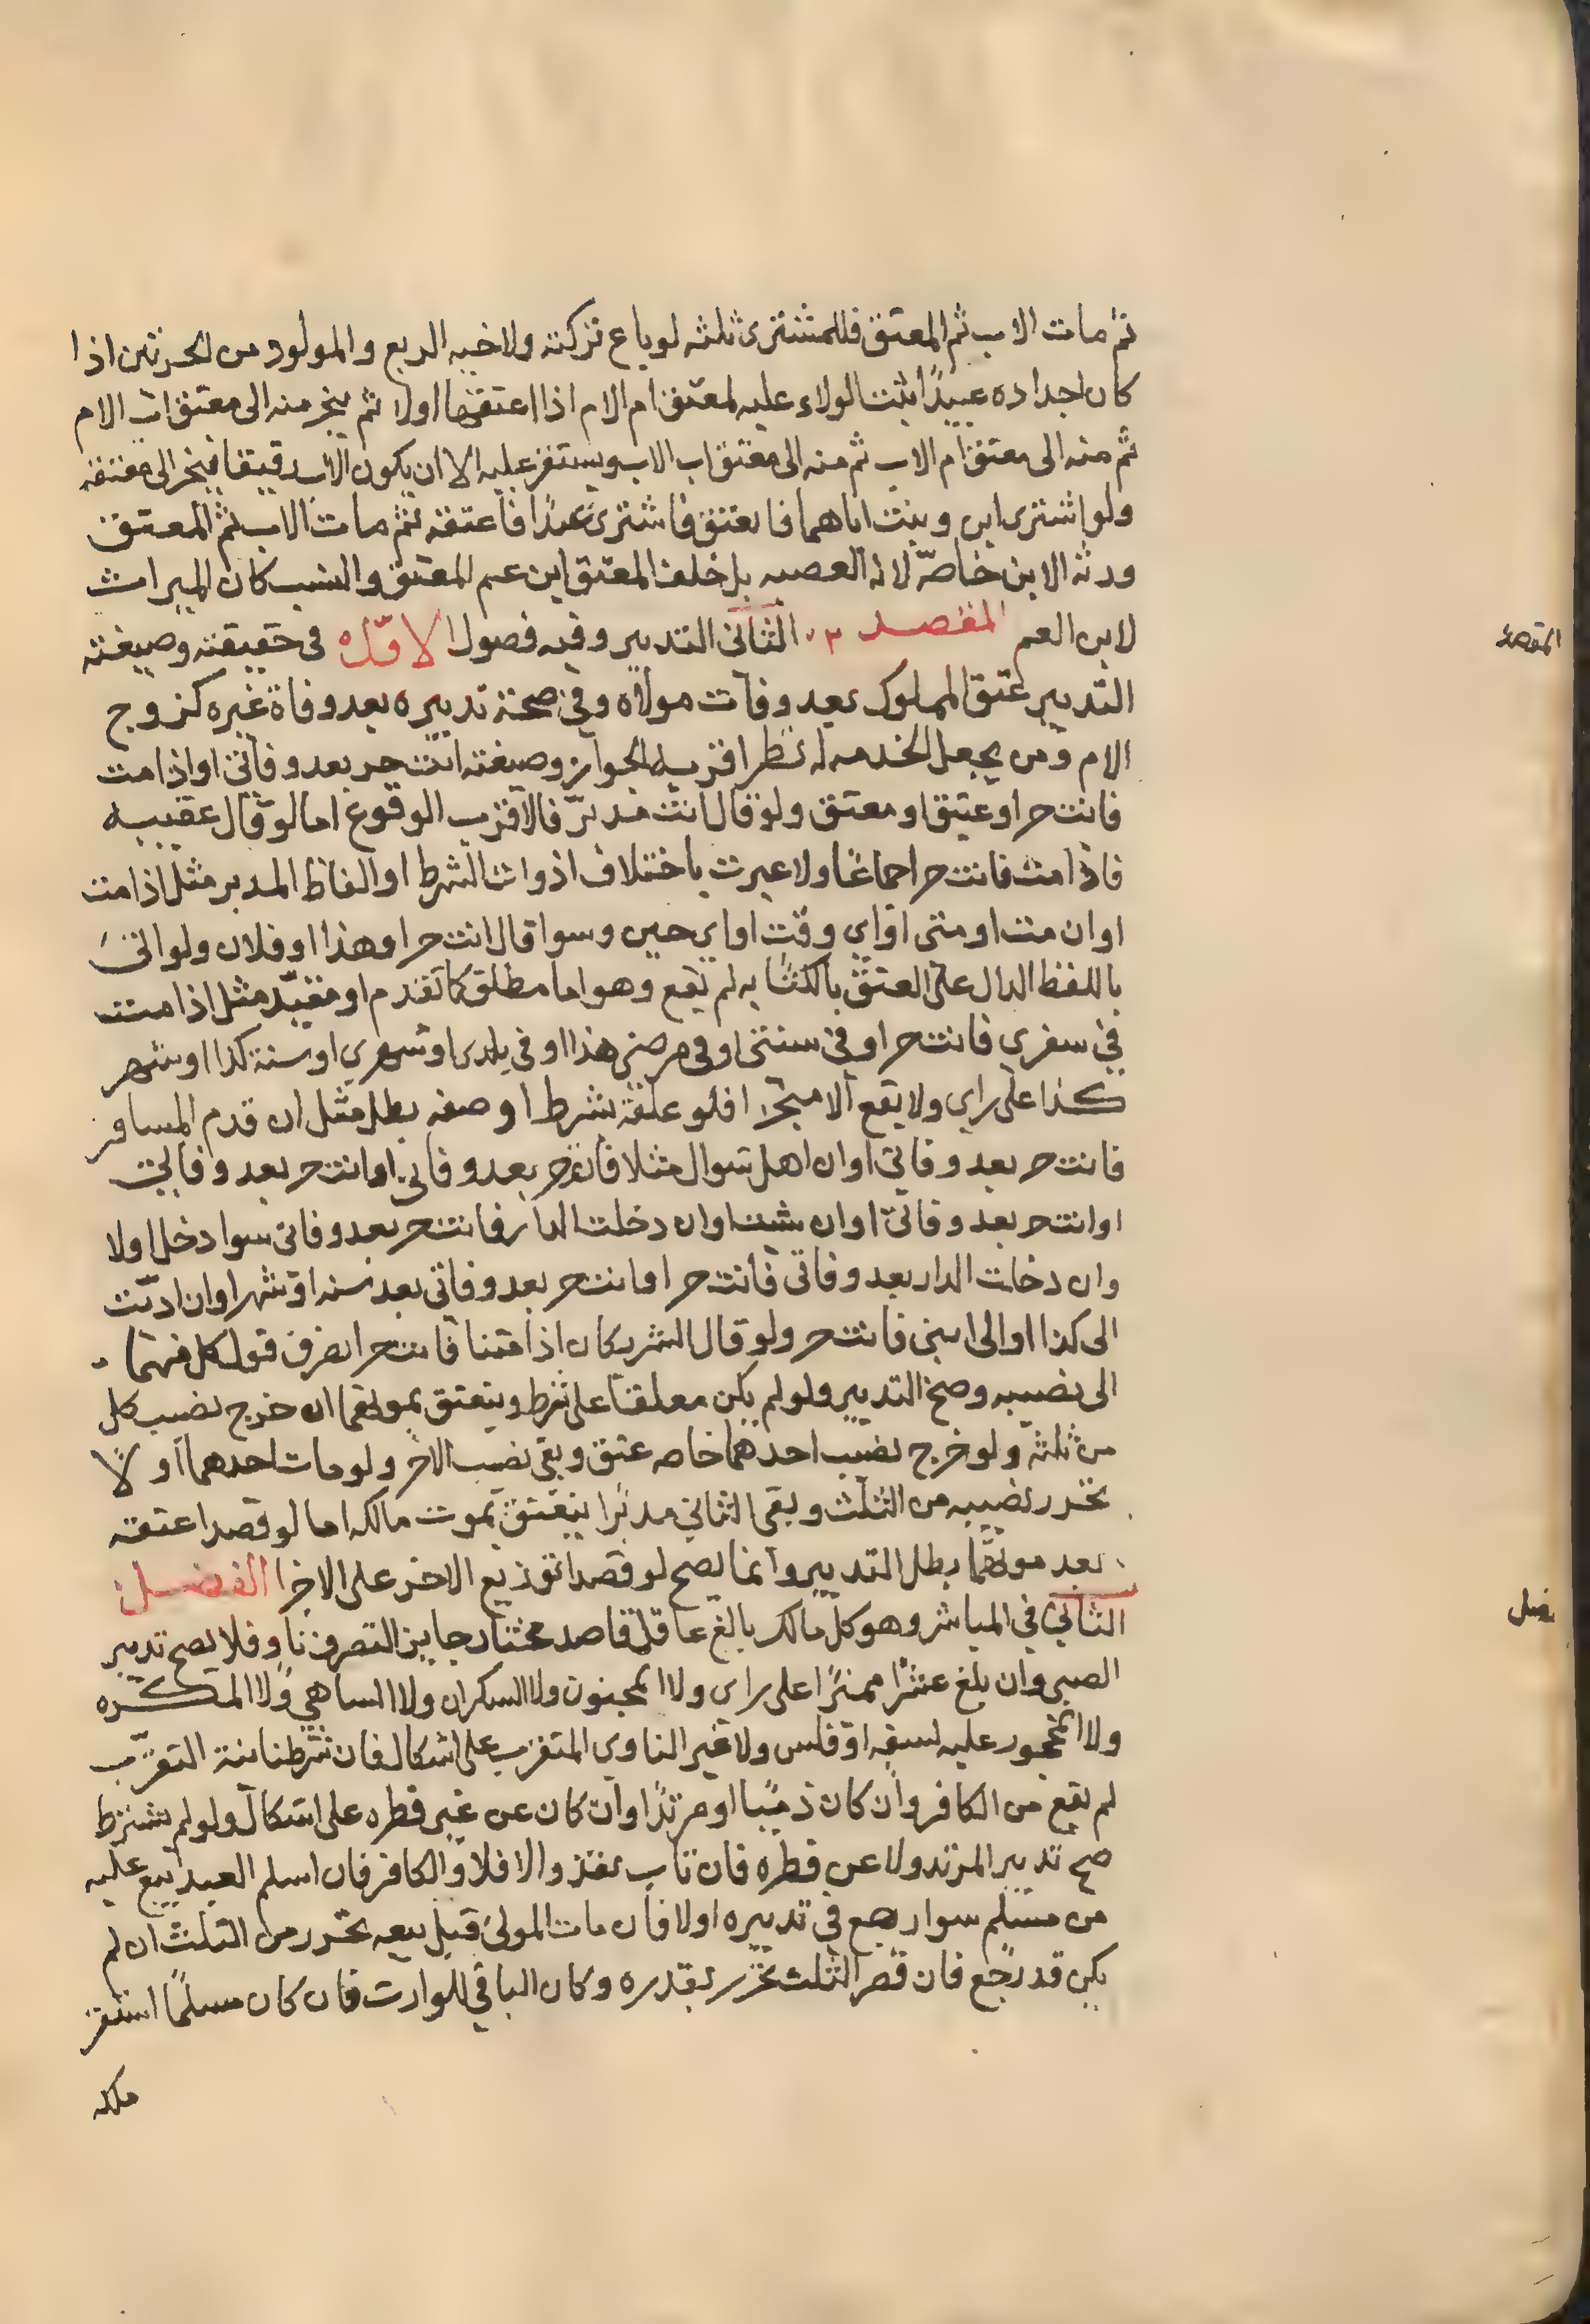 ثم مات الاب ثم المعتق فللمشتري ثلثه لوباع تركته ولاخيه الربع والمولود من الحرتين اذا
كان اجداده عبيدًا يثبت الولاء عليه لمعتق ام الام اذا اعتقها اولا ثم ينجر منه الى معتق اب الام
ثم منه الى معتق ام الاب ثم منه الى معتق اب الاب ويستقر عليه الا ان يكون الاب رقيقا فينجر الى معتقه
ولو اشترى ابن وبنت اباهما فانعتق فاشترى عبدًا فاعتقه ثم مات الاب ثم المعتق
ورثه الابن خاصّة لانه العصبه بل خلف المعتق ابن عم المعتق والبنت كان الميراث
لابن العم المقصد ٢ الثاني التدبير وفيه فصول الاوّل في حقيقته وصيغته
التدبير عتق المملوك بعد وفات مولاه وفي صحة تدبيره بعد وفاة غيره كزوج
الام ومن يجعل الخدمه له نظر اقربه الجواز وصيغته انت حر بعد وفاتي او اذا مت
فانت حر او عتيق او معتق ولو قال انت مدبّر فالاقرب الوقوع اما لو قال عقيبه
فاذا مت فانت حر اجماعًا ولا عبرت باختلاف ادوات الشرط او الفاظ المدبر مثل اذا مت
او ان مت او متى او اي وقت او اي حين وسوا قال انت حر او هذا او فلان ولو اتى
باللفظ الدال على العتق بالكتابه لم يقع وهو اما مطلق كما تقدم او مقيّد مثل اذا مت
في سفري فانت حر او في سنتي او في مرضي هذا او في بلدي او شهري او سنة كذا او شهر
كذا على راي ولا يقع الا منجزا فلو علقه بشرط او صفه بطل مثل ان قدم المسافر
فانت حر بعد وفاتي او ان اهل شوال مثلا فانت حر بعد وفاتي او انت حر بعد وفاتي
او انت حر بعد وفاتي او ان شئت او ان دخلت الدار فانت حر بعد وفاتي سوا دخل اولا
وان دخلت الدار بعد وفاتي فانت حر او انت حر بعد وفاتي بعد سنه او شهر او ان ادّيت
الى كذا او الى ابني فانت حر ولو قال الشريكان اذا متنا فانت حر انصرف قول كل منهما
الى نصيبه وصح التدبير ولو لم يكن معلقا على شرط وينعتق بموتهما ان خرج نصيب كل
من ثلثه ولو خرج نصيب احدهما خاصه عتق وبقى نصيب الاخر ولو مات احدهما اولًا
تحرر نصيبه من الثلث وبقى الثاني مدبرًا ينعتق بموت مالكه اما لو قصد اعتقه
بعد موتهما بطل التدبير وانما يصح لو قصدا توزيع الاخر على الاخرا الفصل
الثاني في المباشر وهو كل مالك بالغ عاقل قاصد مختار جايز التصرف ناو فلا يصح تدبير
الصبي وان بلغ عشرًا مميزًا على راي ولا المجنون ولا السكران ولا الساهي ولا المكره
ولا المحجور عليه لسفه او فلس ولا غير الناوي المتقرب على اشكال فان شرطنا نية التقرّب
لم يقع من الكافر وان كان ذميًا او مرتدًا وان كان عن غير فطره على اشكال ولو لم نشترط
صح تدبير المرتد ولا عن فطره فان تاب نفذ والا فلا والكافر فان اسلم العبد بيع عليه
من مسلم سوا رجع في تدبيره اولا فان مات المولى قبل بيعه تحرر من الثلث ان لم
يكن قد رجع فان قصر الثلث تحرر بقدره وكان الباقي للوارث فان كان مسلمًا استقر
ملكه
المقصد
فصل